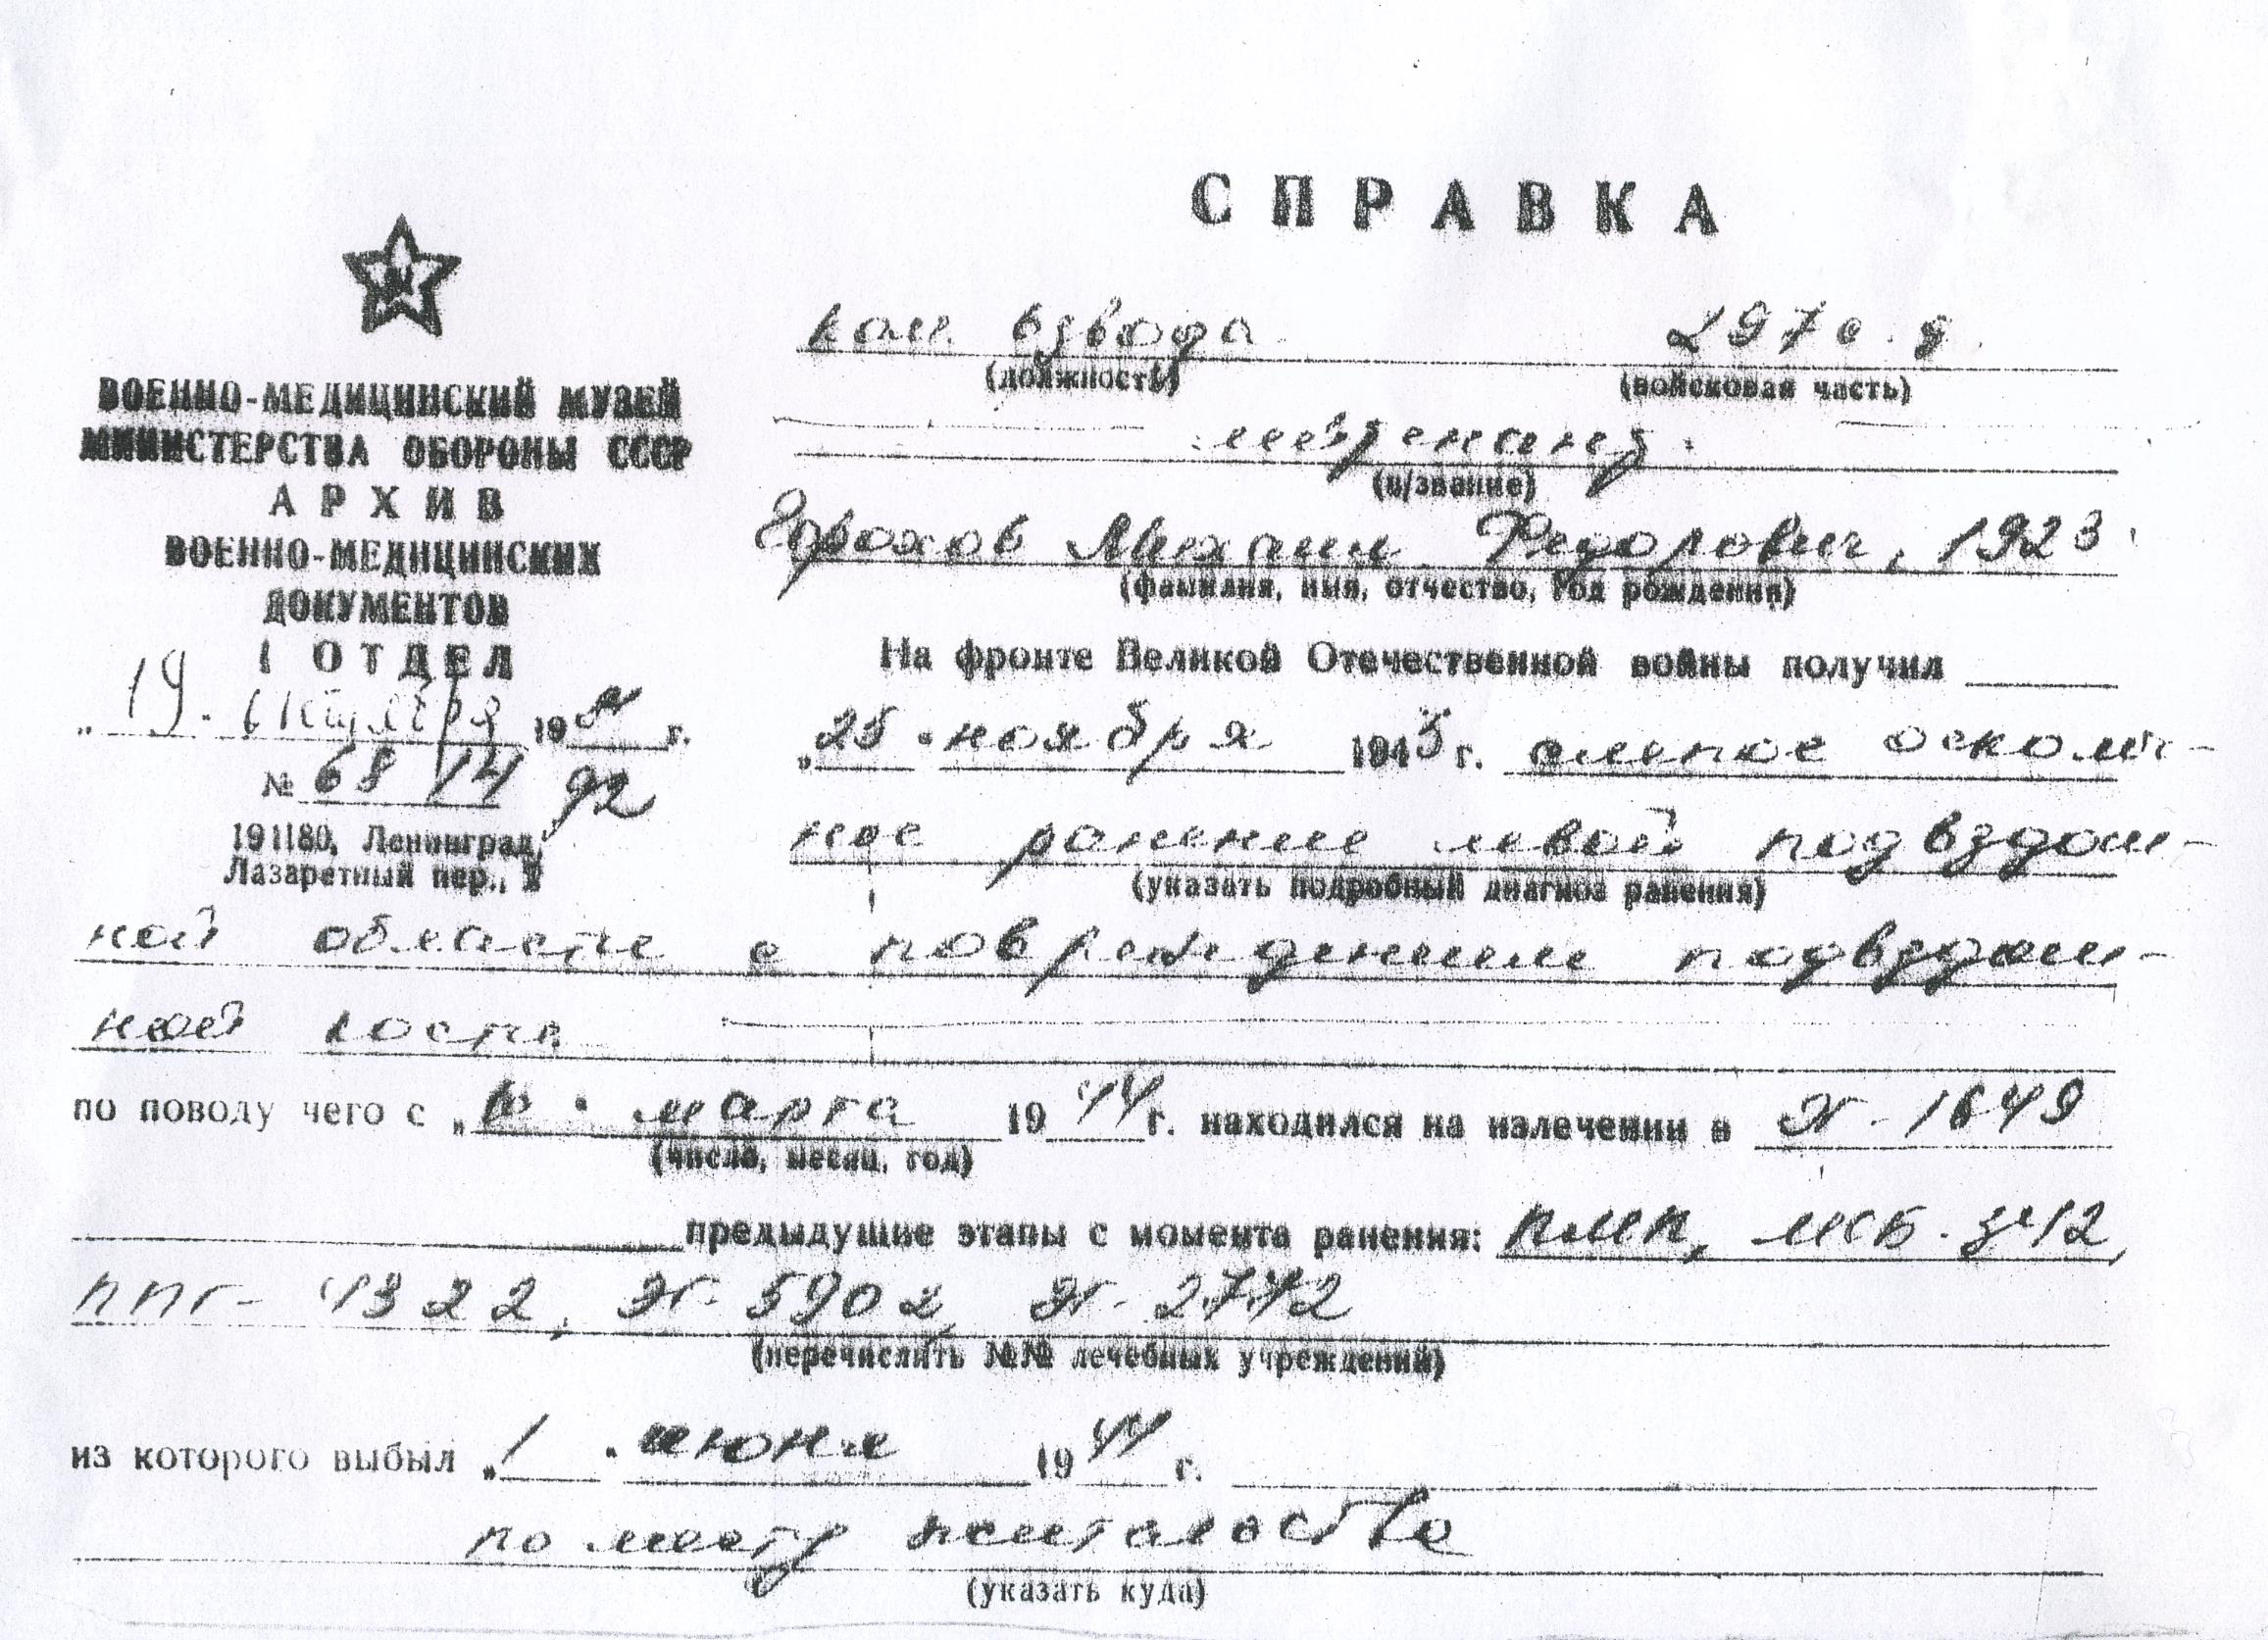 СПРАВКА
ВОЕННО-МЕДИЦИНСКИЙ МУЗЕЙ
МИНИСТЕРСТВА ОБОРОНЫ СССР
АРХИВ
ВОЕННО-МЕДИЦИНСКИХ
ДОКУМЕНТОВ
1 ОТДЕЛ
„19. 19 г.
№ 68 14 92
191180, Ленинград,
Лазаретный пер.,
ком. взвода 297 с. д.
(должность) (войсковая часть)
лейтенант
(в/звание)
Горохов Михаил Федорович, 1923
(фамилия, имя, отчество, год рождения)
На фронте Великой Отечественной войны получил
„25 " ноября 1943 г. слепое осколоч-
ное ранение левой подвздош-
(указать подробный диагноз ранения)
ной области с повреждением подвздош-
ной кости
по поводу чего с „10 " марта 1944 г. находился на излечении в ЭГ-1649
(число, месяц, год)
предыдущие этапы с момента ранения: ПМП, МСБ-342,
ППГ-4322, ЭГ-5902, ЭГ-2772
(перечислить №№ лечебных учреждений)
из которого выбыл „1 " июня 1944 г.
по месту жительства
(указать куда)